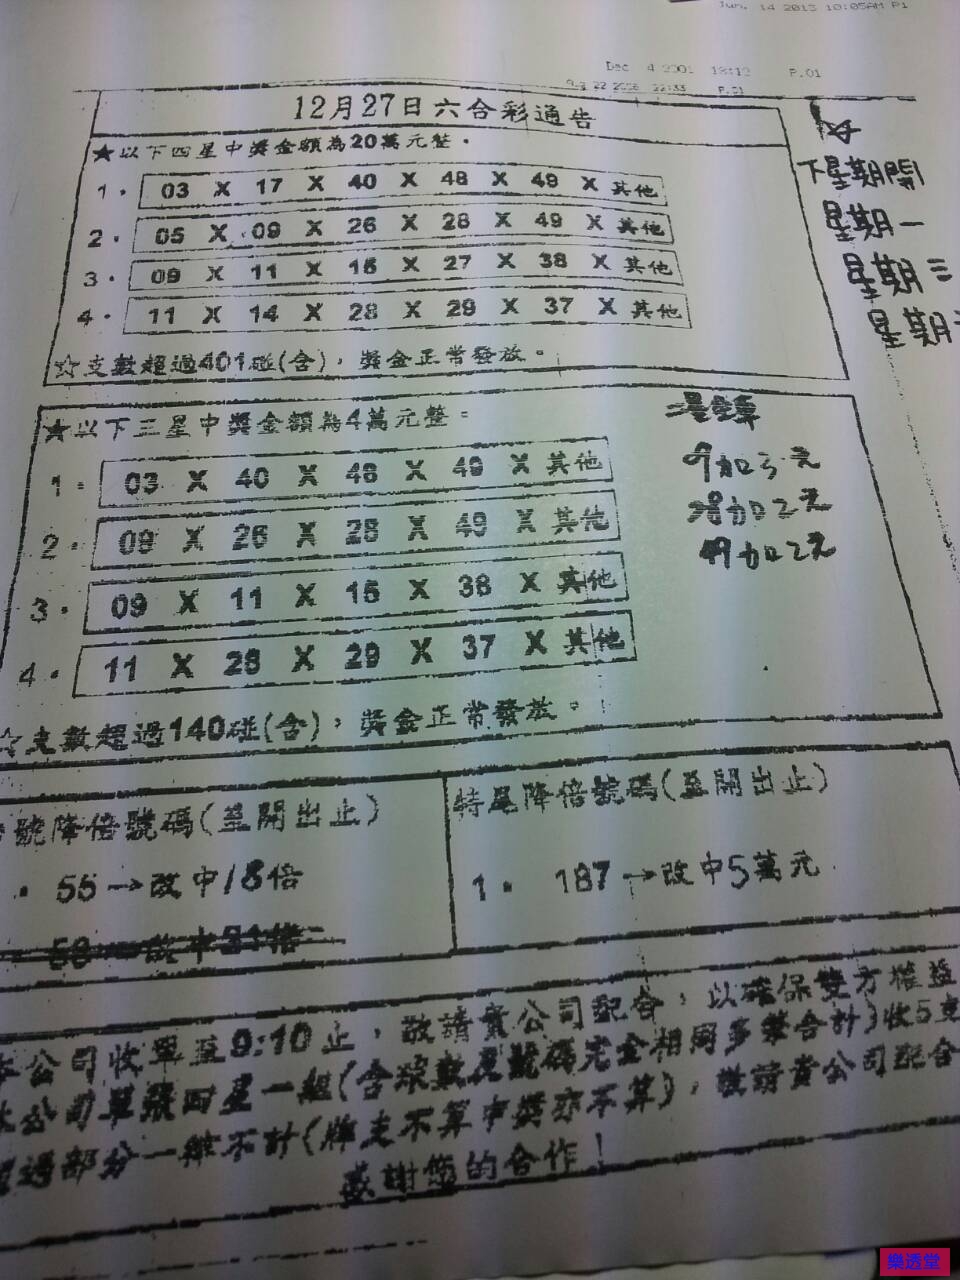 Jun. 14 2013 10:05AM P1
Dec 4 2001 18:12 P.01
22 2006 22:33 P.01
12月27日六合彩通告
★以下四星中獎金額為20萬元整。
1. 03 X 17 X 40 X 48 X 49 X 其他
2. 05 X 09 X 26 X 28 X 49 X 其他
3. 09 X 11 X 15 X 27 X 38 X 其他
4. 11 X 14 X 28 X 29 X 37 X 其他
☆支數超過401碰(含)，獎金正常發放。
下星期開
星期一
星期三
星期
★以下三星中獎金額為4萬元整。
1. 03 X 40 X 48 X 49 X 其他
2. 09 X 26 X 28 X 49 X 其他
3. 09 X 11 X 15 X 38 X 其他
4. 11 X 28 X 29 X 37 X 其他
☆支數超過140碰(含)，獎金正常發放。
9加3元
28加2元
49加2元
號降倍號碼(至開出止)
55→改中18倍
特尾降倍號碼(至開出止)
1. 187→改中5萬元
本公司收單至9:10止，敬請貴公司配合，以確保雙方權益
本公司單張四星一組(含碰數及號碼完全相同多筆合計)收5支
超過部分一概不計(牌支不算中獎亦不算)，敬請貴公司配合
感謝您的合作！
樂透堂